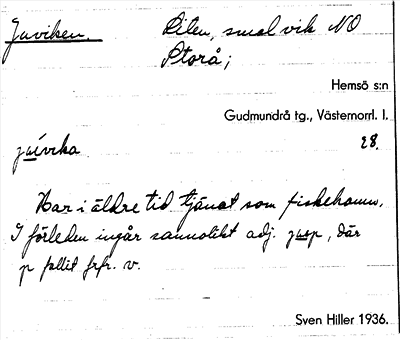 Juviken. Liten, smal vik NO
Storå;
Hemsö s:n
Gudmundrå tg., Västernorrl. l.
juvika 28.
Har i äldre tid tjänat som fiskehamn.
I förleden ingår sannolikt adj. jup, där
p fallit frfr. v.
Sven Hiller 1936.